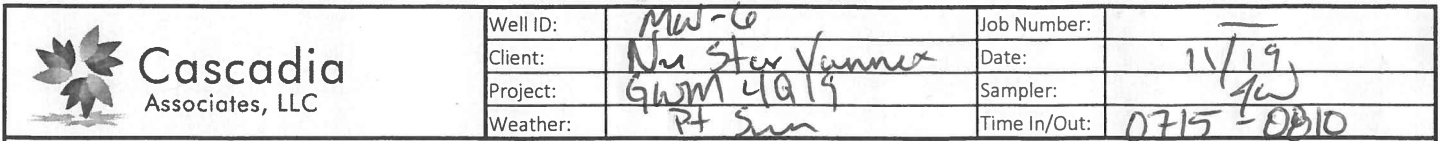 Cascadia
Associates, LLC
Well ID: MW-6 Job Number: —
Client: Nu Star Vannex Date: 11/19
Project: GWM 4Q19 Sampler:
Weather: Pt Sun Time In/Out: 0715 - 0810